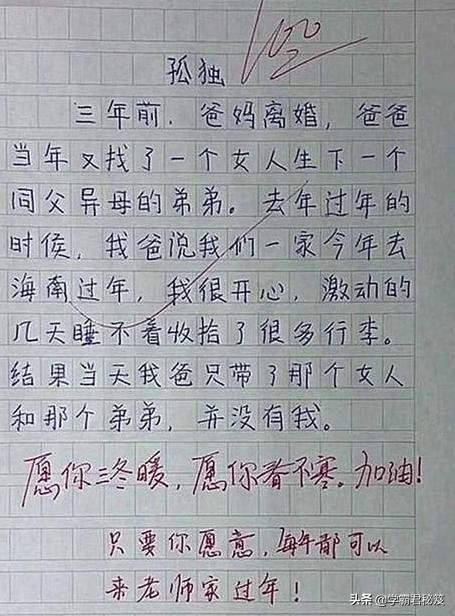 100
孤独
三年前.爸妈离婚,爸爸
当年又找了一个女人生下一个
同父异母的弟弟。去年过年的
时候,我爸说我们一家今年去
海南过年,我很开心,激动的
几天睡不着收拾了很多行李。
结果当天我爸只带了那个女人
和那个弟弟,并没有我。
愿你三冬暖,愿你春不寒。加油!
只要你愿意,每年都可以
来老师家过年!
头条 @学霸君秘笈